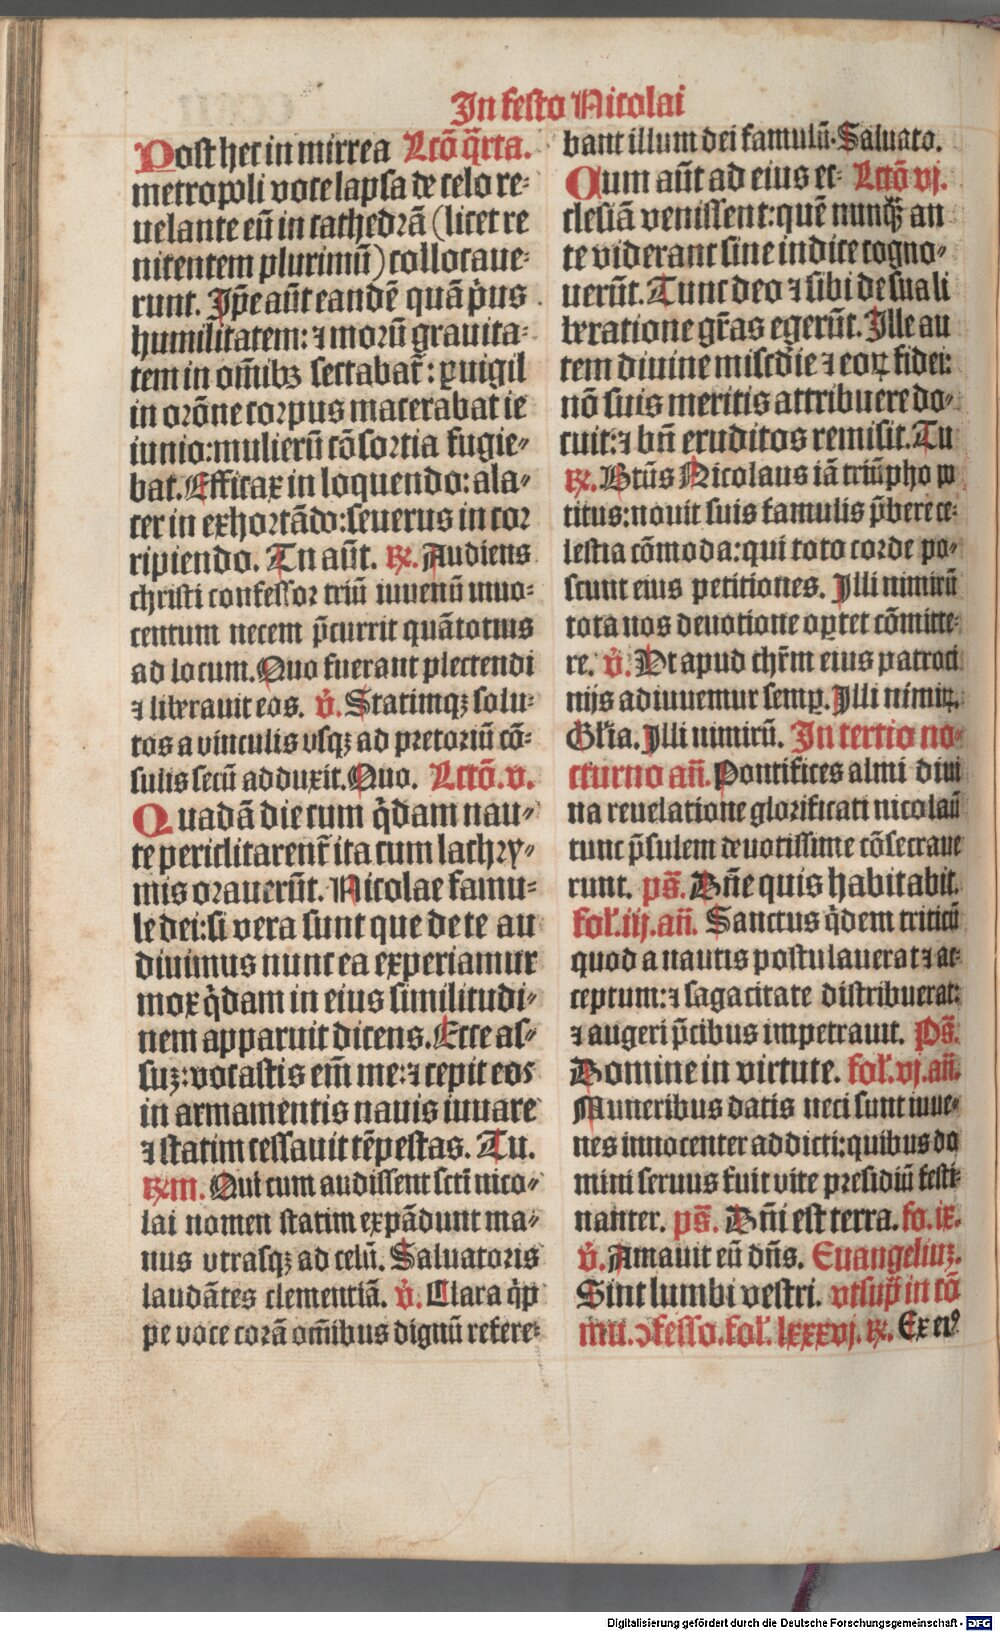 In festo Nicolai
Post hec in mirrea Lctō q̄rta.
metropoli voce lapsa de celo re⸗
uelante eū in cathedrā (licet re
nitentem plurimū) collocaue⸗
runt. Ip̄e aūt eandē quā pͥus
humilitatem: ⁊ morū grauita⸗
tem in om̄ibꝫ sectabat̄: ꝑuigil
in orōne corpus macerabat ie
iunio: mulierū cōsortia fugie⸗
bat. Efficax in loquendo: ala⸗
cer in exhortādo: seuerus in cor
ripiendo. Tu aūt. ℟. Audiens
christi confessor triū iuuenū inno⸗
centum necem p̄currit quātotius
ad locum. Quo fuerant plectendi
⁊ liberauit eos. ℣. Statimqꝫ solu⸗
tos a vinculis vsqꝫ ad pretoriū cō⸗
sulis secū adduxit. Quo. Lctō. v.
Quadā die cum q̄dam nau⸗
te periclitarent̄ ita cum lachry⸗
mis orauerūt. Nicolae famu⸗
le dei: si vera sunt que de te au
diuimus nunc ea experiamur
mox q̄dam in eius similitudi⸗
nem apparuit dicens. Ecce as⸗
suꝫ: vocastis em̄ me: ⁊ cepit eos
in armamentis nauis iuuare
⁊ statim cessauit tēpestas. Tu.
℟m. Qui cum audissent scti nico⸗
lai nomen statim expādunt ma⸗
nus vtrasqꝫ ad celū. Saluatoris
laudātes clementiā. ℣. Clara q̄p
pe voce corā om̄ibus dignū refere⸗
bant illum dei famulū. Saluato.
Cum aūt ad eius ec⸗ Lctō vj.
clesiā venissent: quē nunqꝫ an
te viderant sine indice cogno⸗
uerūt. Tunc deo ⁊ sibi de sua li
beratione gr̄as egerūt. Ille au
tem diuine misc̄die ⁊ eoꝝ fidei:
nō suis meritis attribuere do⸗
cuit: ⁊ bn̄ eruditos remisit. Tu
℟. Btūs Nicolaus iā triūpho po
titus: nouit suis famulis p̄bere ce⸗
lestia cōmoda: qui toto corde po⸗
scunt eius petitiones. Illi nimirū
tota nos deuotione oꝑtet cōmitte⸗
re. ℣. Vt apud chr̄m eius patroci
nijs adiuuemur semꝑ. Illi nimiꝝ.
Gl̄ia. Illi nimirū. In tertio no⸗
cturno an̄. Pontifices almi diui
na reuelatione glorificati nicolaū
tunc p̄sulem deuotissime cōsecraue
runt. ps̄. Dn̄e quis habitabit.
fol̄. iij. an̄. Sanctus q̄dem triticū
quod a nautis postulauerat ⁊ ac⸗
ceptum: ⁊ sagacitate distribuerat:
⁊ augeri p̄cibus impetrauit. Ps̄.
Domine in virtute. fol̄. vj. an̄.
Muneribus datis neci sunt iuue⸗
nes innocenter addicti: quibus do
mini seruus fuit vite presidiū festi⸗
nanter. ps̄. Dn̄i est terra. fo. ix.
℣. Amauit eū dn̄s. Euangeliuꝫ.
Sint lumbi vestri. vtsup̄ in cō
mu. ꝯfesso. fol̄. lxxxvj. ℟. Ex eiꝰ
Digitalisierung gefördert durch die Deutsche Forschungsgemeinschaft - DFG